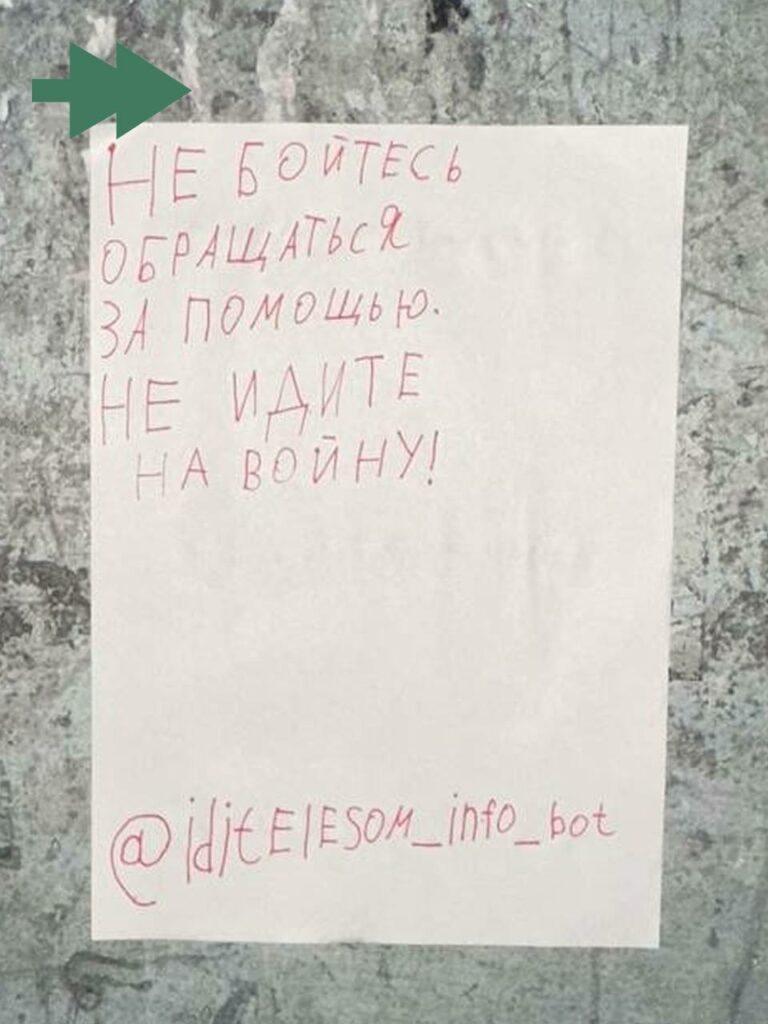 НЕ БОЙТЕСЬ
ОБРАЩАТЬСЯ
ЗА ПОМОЩЬЮ.
НЕ ИДИТЕ
НА ВОЙНУ!
@iditElESOM_info_bot